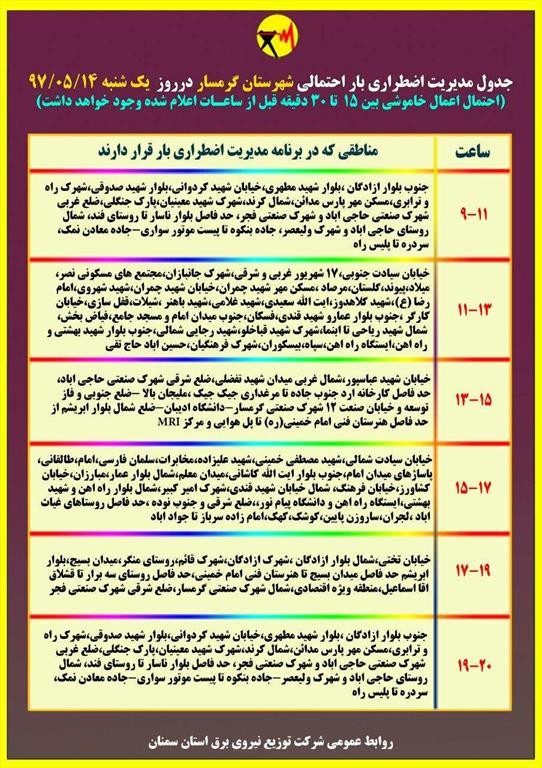 جدول مدیریت اضطراری بار احتمالی شهرستان گرمسار درروز یک شنبه ۹۷/۰۵/۱۴
(احتمال اعمال خاموشی بین ۱۵ تا ۳۰ دقیقه قبل از ساعـات اعلام شده وجود خواهد داشت)
ساعت
مناطقی که در برنامه مدیریت اضطراری بار قرار دارند
۹-۱۱
جنوب بلوار ازادگان ،بلوار شهید مطهری،خیابان شهید کردوانی،بلوار شهید صدوقی،شهرک راه
و ترابری،مسکن مهر پارس مدائن،شمال کرند،شهرک شهید معینیان،پارک جنگلی،ضلع غربی
شهرک صنعتی حاجی اباد و شهرک صنعتی فجر، حد فاصل بلوار ناسار تا روستای فند، شمال
روستای حاجی اباد و شهرک ولیعصر، جاده بنکوه تا پیست موتور سواری-جاده معادن نمک،
سردره تا پلیس راه
۱۱-۱۳
خیابان سیادت جنوبی،۱۷ شهریور غربی و شرقی،شهرک جانبازان،مجتمع های مسکونی نصر،
میلاد،پیوند،گلستان،مرصاد ،مسکن مهر شهید چمران،خیابان شهید چمران،شهید شهروی،امام
رضا (ع)،شهید کلاهدوز،ایت الله سعیدی،شهید غلامی،شهید باهنر ،شیلات،قفل سازی،خیابان
کارگر ،جنوب بلوار عمارو شهید قندی،فسکان،جنوب میدان امام و مسجد جامع،فیاض بخش،
شمال شهید ریاحی تا اینما،شهرک شهید قباخلو،شهید رجایی شمالی،جنوب بلوار شهید بهشتی و
راه اهن،ایستگاه راه اهن،سپاه،بیسکوران،شهرک فرهنگیان،حسین اباد حاج تقی
۱۳-۱۵
خیابان شهید عباسپور،شمال غربی میدان شهید تفضلی،ضلع شرقی شهرک صنعتی حاجی اباد،
حد فاصل کارخانه ارد جنوب جاده تا مرغداری جیک جیک ،ملیجان بالا -ضلع جنوبی و فاز
توسعه و خیابان صنعت ۱۲ شهرک صنعتی گرمسار-دانشگاه ادیبان-ضلع شمال بلوار ابریشم از
حد فاصل هنرستان فنی امام خمینی(ره) تا پل هوایی و مرکز MRI
۱۵-۱۷
خیابان سیادت شمالی،شهید مصطفی خمینی،شهید علیزاده،مخابرات،سلمان فارسی،امام،طالقانی،
پاساژهای میدان امام،جنوب بلوار ایت الله کاشانی،میدان معلم،شمال بلوار عمار،مبارزان،خیابان
کشاورز،خیابان فرهنگ، شمال خیابان شهید قندی،شهرک امیر کبیر،شمال بلوار راه اهن و شهید
بهشتی،ایستگاه راه اهن و دانشگاه پیام نور،،ضلع شرقی و جنوب نوده ،حد فاصل روستاهای غیاث
اباد ،لجران،ساروزن پایین،کوشک،کهک،امام زاده سرباز تا جواد اباد
۱۷-۱۹
خیابان تختی،شمال بلوار ازادگان ،شهرک ازادگان،شهرک قائم،روستای منگر،میدان بسیج،بلوار
ابریشم حد فاصل میدان بسیج تا هنرستان فنی امام خمینی،حد فاصل روستای سه برار تا قشلاق
اقا اسماعیل،منطقه ویژه اقتصادی،شمال شهرک صنعتی گرمسار،ضلع شرقی شهرک صنعتی فجر
۱۹-۲۰
جنوب بلوار ازادگان ،بلوار شهید مطهری،خیابان شهید کردوانی،بلوار شهید صدوقی،شهرک راه
و ترابری،مسکن مهر پارس مدائن،شمال کرند،شهرک شهید معینیان،پارک جنگلی،ضلع غربی
شهرک صنعتی حاجی اباد و شهرک صنعتی فجر، حد فاصل بلوار ناسار تا روستای فند، شمال
روستای حاجی اباد و شهرک ولیعصر-جاده بنکوه تا پیست موتور سواری-جاده معادن نمک،
سردره تا پلیس راه
روابط عمومی شرکت توزیع نیروی برق استان سمنان